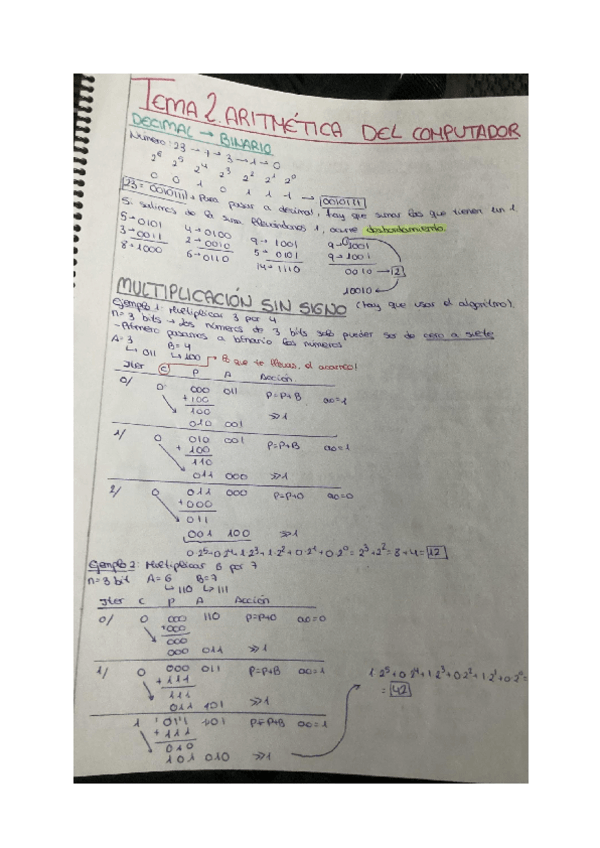 TEMA 2. ARITMÉTICA DEL COMPUTADOR
DECIMAL → BINARIO
Número: 23 → 7 → 3 → 1 → 0
2^6 2^5 2^4 2^3 2^2 2^1 2^0
0 0 1 0 1 1 1 → 0010111
23 = 0010111 → Para pasar a decimal, hay que sumar los que tienen un 1.
Si salimos de la suma llevándonos 1, ocurre desbordamiento.
5→0101 4→0100 9→1001 9→1001
3→0011 2→0010 5→0101 9→1001
8→1000 6→0110 14→1110 0010→2
10010
MULTIPLICACIÓN SIN SIGNO (hay que usar el algoritmo).
Ejemplo 1: Multiplicar 3 por 4
n=3 bits → dos números de 3 bits solo pueden ser de cero a siete
-Primero pasamos a binario los números
A=3 B=4
↳ 011 ↳ 100 → lo que te llevas, el acarreo!
Iter C P A Acción
0/ 0 000 011 P=P+B a0=1
+100
100 >>1
010 001
1/ 0 010 001 P=P+B a0=1
+ 100
110
011 000 >>1
2/ 0 011 000 P=P+0 a0=0
+000
011
001 100 >>1
0·2^5+0·2^4+1·2^3+1·2^2+0·2^1+0·2^0= 2^3+2^2= 8+4= 12
Ejemplo 2: Multiplicar 6 por 7
n=3 bit A=6 B=7
↳ 110 ↳ 111
Iter C P A Acción
0/ 0 000 110 P=P+0 a0=0
+000
000
000 011 >>1
1/ 0 000 011 P=P+B a0=1
+111
111
011 101 >>1
1 011 101 P=P+B a0=1
+111
010
101 010 >>1
1·2^5+0·2^4+1·2^3+0·2^2+1·2^1+0·2^0=
= 42